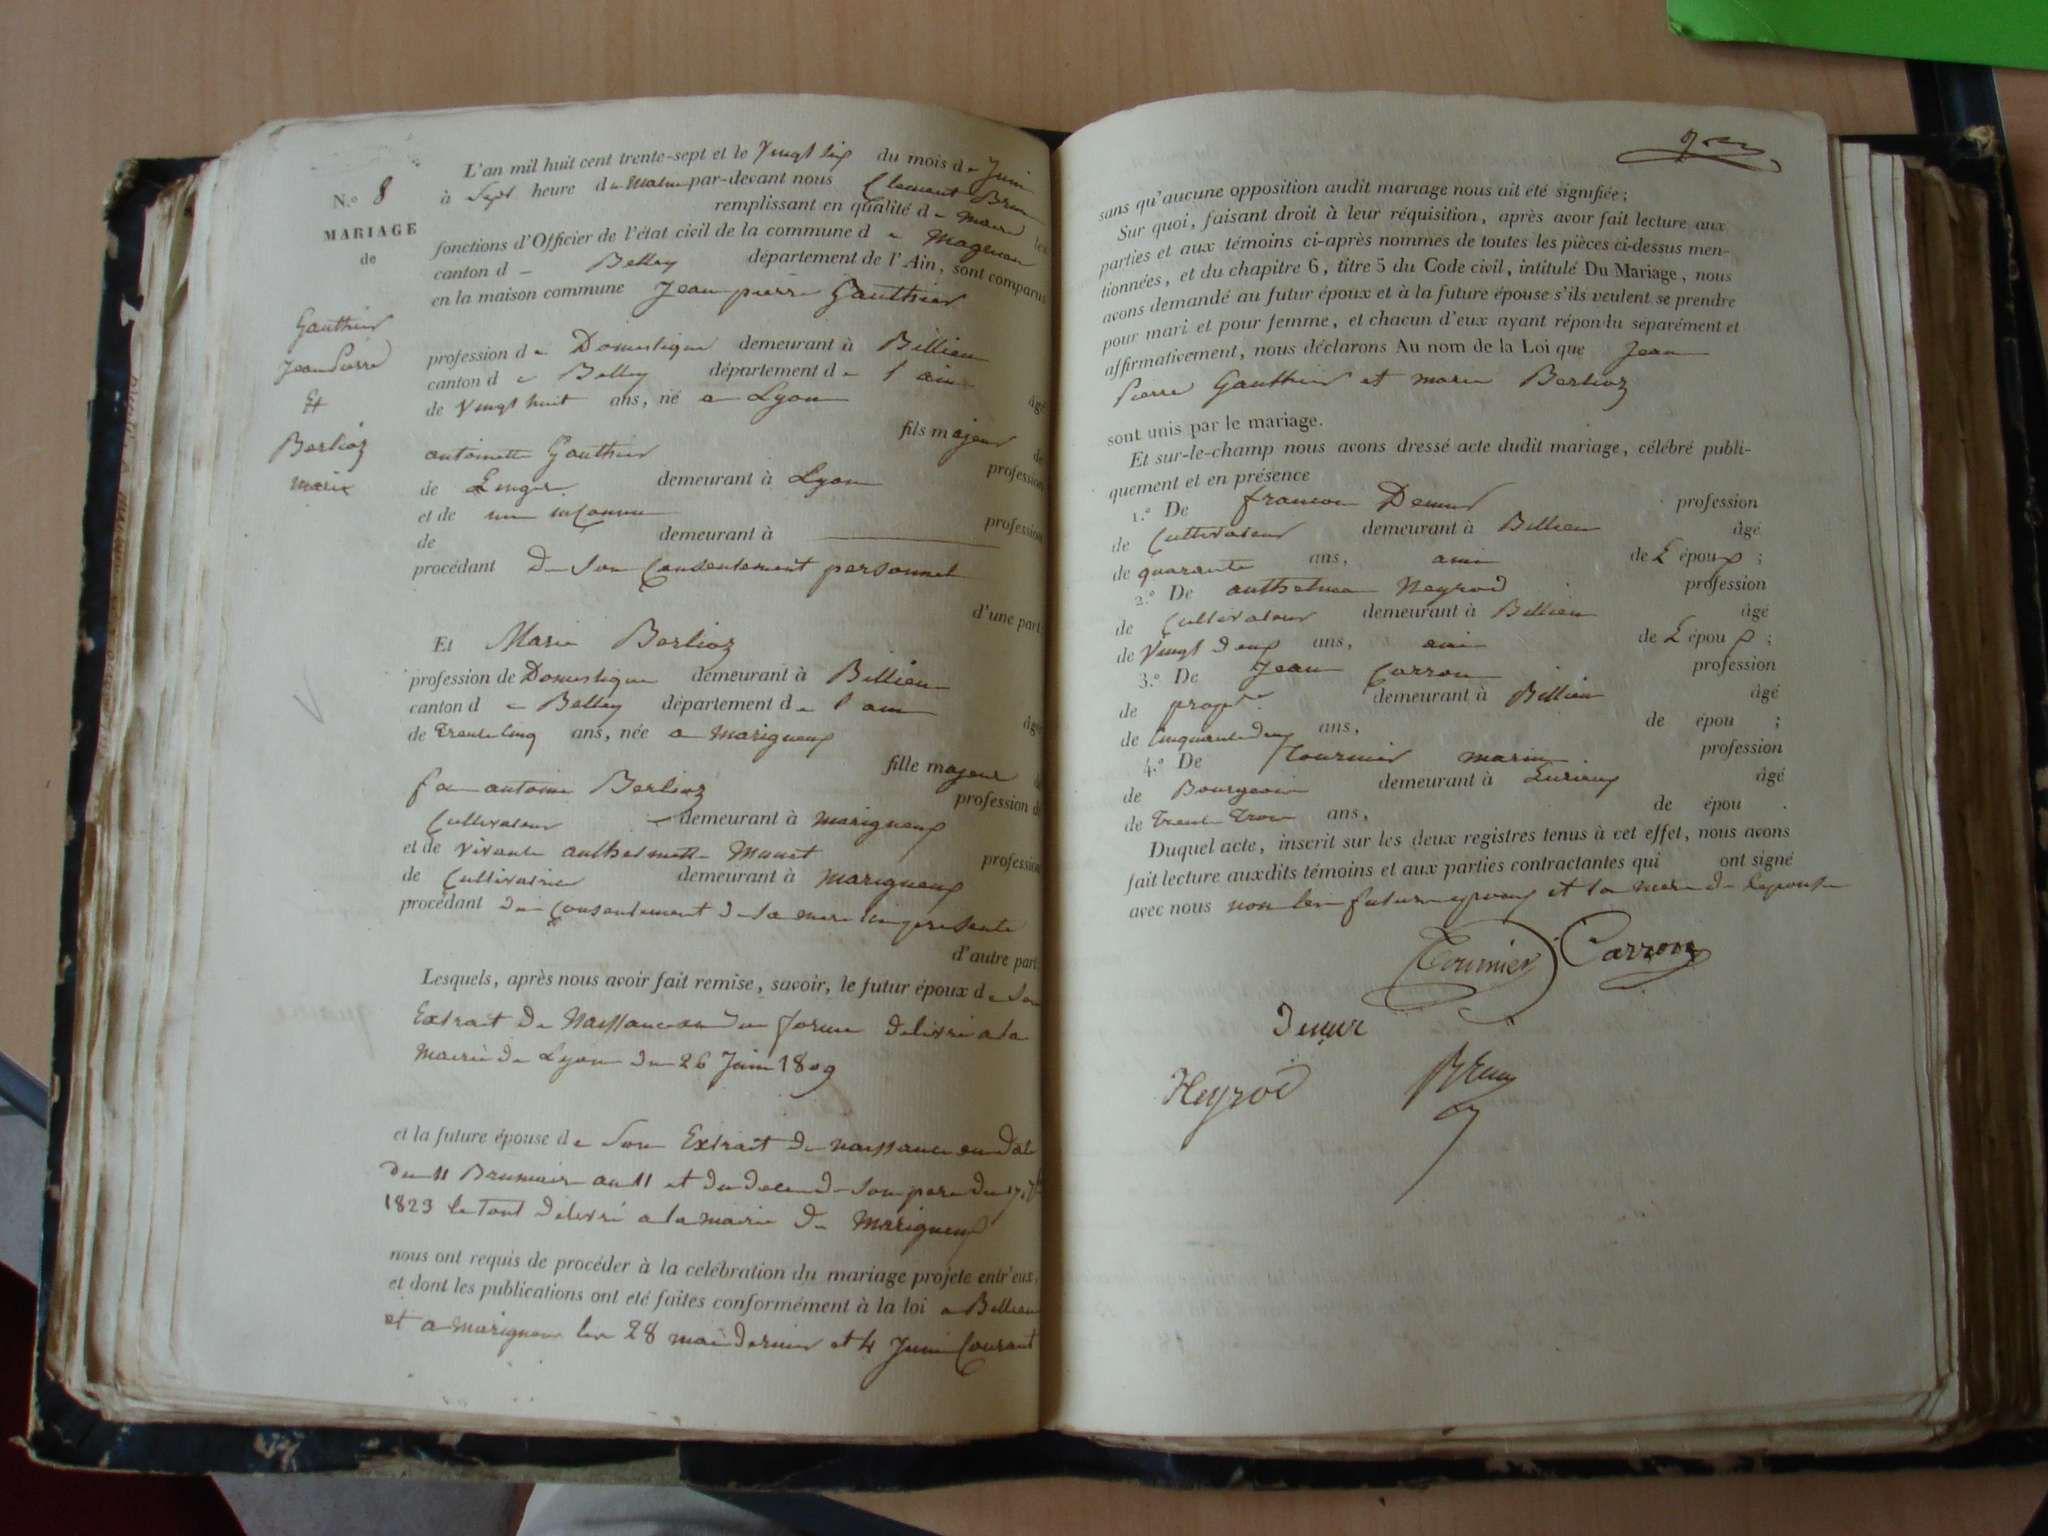 N.º 8
MARIAGE
de
Gauthier
Jean Pierre
Et
Berlioz
marie
L'an mil huit cent trente-sept et le Vingt six du mois de Juin
à Sept heure du Matin par-devant nous Clement Brun
remplissant en qualité de Maire les
fonctions d'Officier de l'état civil de la commune d e Magnieu
canton d e Belley département de l'Ain, sont comparus
en la maison commune Jean pierre Gauthier
profession de Domestique demeurant à Billieu
canton d e Belley département de l ain
âgé
de Vingt huit ans, né a Lyon
fils majeur de
antoinette Gauthier
profession
de Linger demeurant à Lyon
et de un inConnu
profession
de demeurant à
procédant De Son Consentement personnel
d'une part;
Et Marie Berlioz
profession de Domestique demeurant à Billieu
canton d e Belley département de l ain
âgée
de Trente Cinq ans, née a Marigneux
fille majeur de
feu antoine Berlioz
profession de
Cultivateur demeurant à Marigneux
et de vivante anthelmette Monet
profession
de Cultivatrice demeurant à Marigneux
procédant du Consentement de la mere ici presente
d'autre part.
Lesquels, après nous avoir fait remise, savoir, le futur époux de Son
Extrait De Naissance en due forme delivré a la
Mairie de Lyon du 26 Juin 1809
et la future épouse de Son Extrait De naissance en date
du 11 Brumaire an 11 et du deces de Son pere du
1823 le Tout delivré a la mairie De Marigneux
nous ont requis de procéder à la celébration du mariage projeté entr'eux,
et dont les publications ont été faites conformément à la loi a Billieu
et a Marigneu les 28 mai Dernier et 4 Juin Courant
sans qu'aucune opposition audit mariage nous ait été signifiée;
Sur quoi, faisant droit à leur réquisition, après avoir fait lecture aux
parties et aux témoins ci-après nommés de toutes les pièces ci-dessus men-
tionnées, et du chapitre 6, titre 5 du Code civil, intitulé Du Mariage, nous
avons demandé au futur époux et à la future épouse s'ils veulent se prendre
pour mari et pour femme, et chacun d'eux ayant répondu séparément et
affirmativement, nous déclarons Au nom de la Loi que Jean
Pierre Gauthier et marie Berlioz
sont unis par le mariage.
Et sur-le-champ nous avons dressé acte dudit mariage, célébré publi-
quement et en présence
1.º De francois Demur profession
de Cultivateur demeurant à Billieu âgé
de quarante ans, ami de L époux ;
2.º De anthelme Neyrod profession
de Cultivateur demeurant à Billieu âgé
de Vingt deux ans, ami de L époux ;
3.º De Jean Carron profession
de propre demeurant à Billieu âgé
de Cinquante deux ans, de épou ;
4.º De Tournier marin profession
de Bourgeois demeurant à Lurieux âgé
de Trente Trois ans, de épou .
Duquel acte, inscrit sur les deux registres tenus à cet effet, nous avons
fait lecture auxdits témoins et aux parties contractantes qui ont signé
avec nous non les future epoux et la mere de l epouse
Tournier Carron
Demur
Neyrod Brun